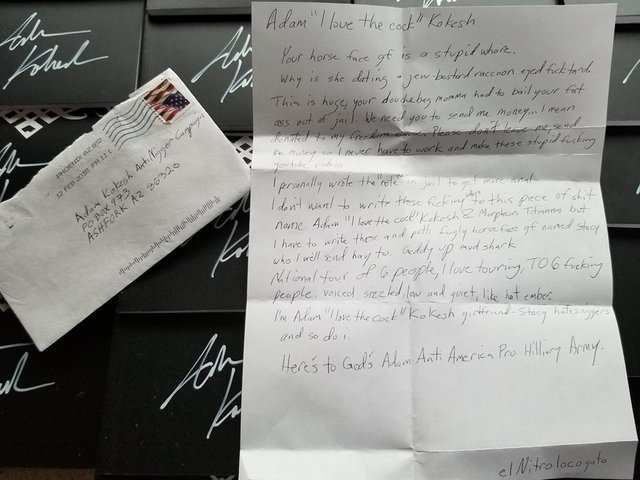 Adam "I love the cock" Kokesh
Your horse face gf is a stupid whore.
Why is she dating a jew bastard raccoon eyed fucktard.
This is huge, your douchebag momma had to bail your fat
ass out of jail. We need you to send me money... I mean
donated to my freedom Please don't leave me, send
me money so I never have to work and make these stupid fucking
youtube videos
I personally wrote the "note" in jail to get more
I don't want to write these fucking to this piece of shit
name Adam "I love the cock" Kokesh & Morpheus Titmanna but
I have to write these and poth fugly horse face gf named stacy
who I well send hay to. Giddy up mud shark
National tour of 6 people, I love touring, TO 6 fucking
people. voiced sizzled, low and quiet, like hot ember.
I'm Adam "I love the cock" Kokesh girlfriend - Stacy hates niggers
and so do i.
Here's to God's Adam Anti America Pro Hillary Army.
el Nitrolocogato
PHOENIX AZ 852
12 FEB 2018 PM 11 L
Adam Kokesh Anti Nigger Campaign
PO BOX 973
ASHFORK AZ 86320
Adam
Kokesh